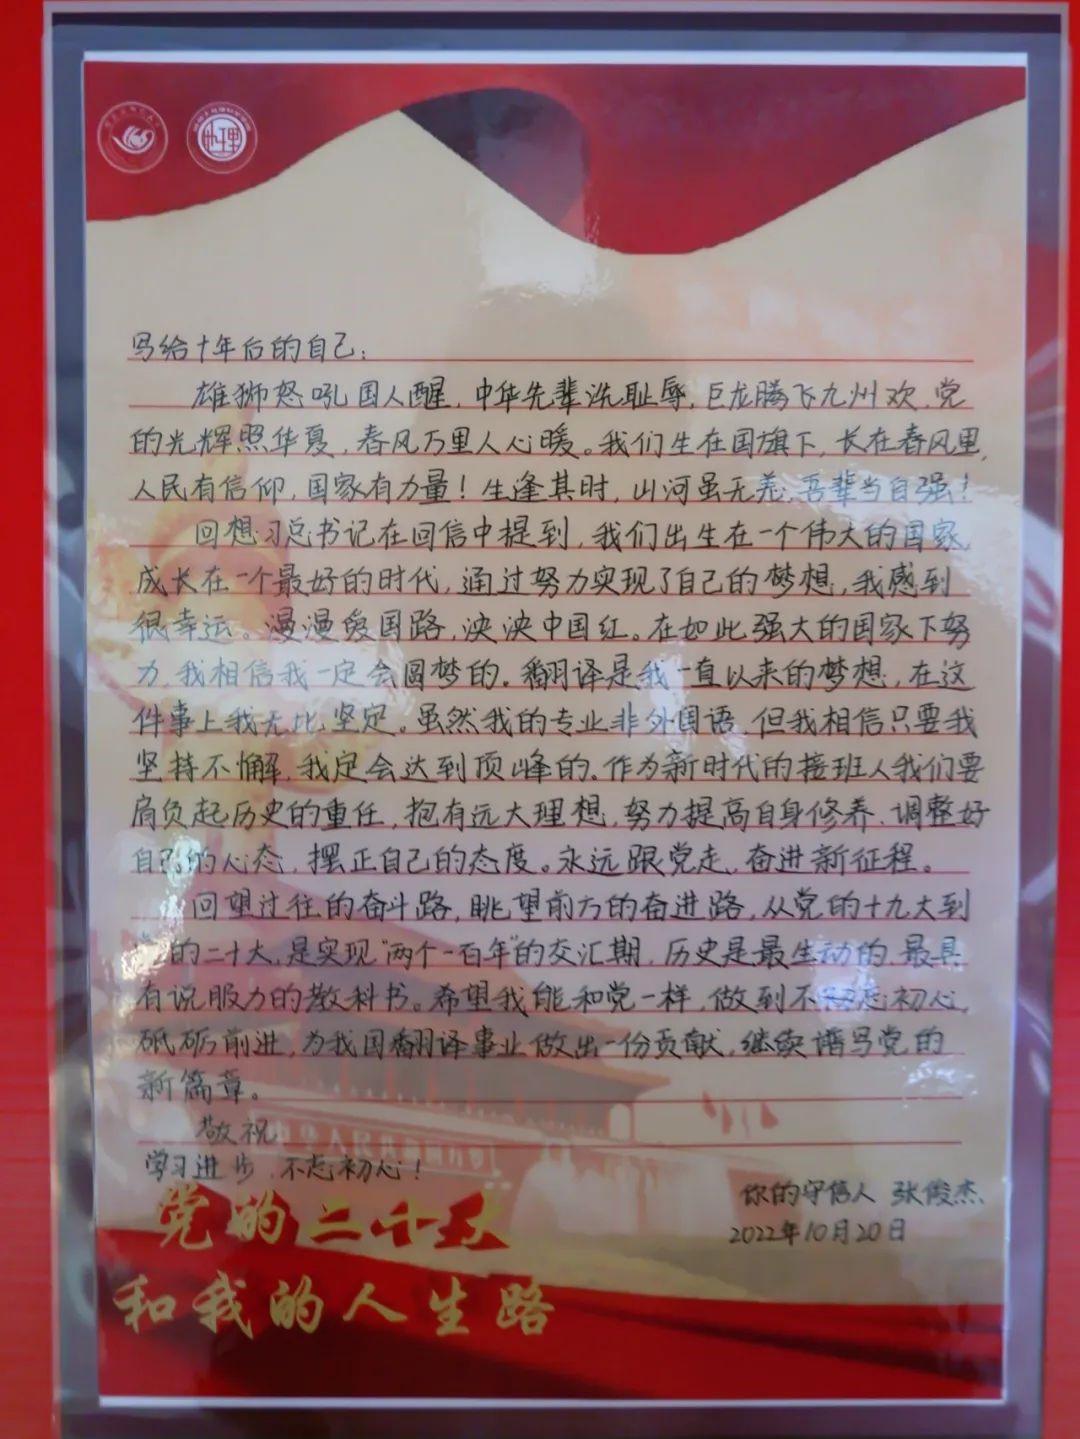 写给十年后的自己:
雄狮怒吼国人醒,中华先辈洗耻辱,巨龙腾飞九州欢,党
的光辉照华夏,春风万里人心暖。我们生在国旗下,长在春风里,
人民有信仰,国家有力量!生逢其时,山河虽无恙,吾辈当自强!
回想习总书记在回信中提到,我们出生在一个伟大的国家,
成长在一个最好的时代,通过努力实现了自己的梦想,我感到
很幸运。漫漫爱国路,泱泱中国红。在如此强大的国家下努
力,我相信我一定会圆梦的。翻译是我一直以来的梦想,在这
件事上我无比坚定。虽然我的专业非外国语,但我相信只要我
坚持不懈,我定会达到顶峰的。作为新时代的接班人我们要
肩负起历史的重任,抱有远大理想,努力提高自身修养,调整好
自己的心态,摆正自己的态度。永远跟党走,奋进新征程。
回望过往的奋斗路,眺望前方的奋进路,从党的十九大到
的二十大,是实现“两个一百年”的交汇期,历史是最生动的,最具
有说服力的教科书。希望我能和党一样,做到不忘初心,
砥砺前进,为我国翻译事业做出一份贡献,继续谱写党的
新篇章。
敬祝
学习进步,不忘初心!
你的守信人 张俊杰
2022年10月20日
党的二十大
和我的人生路